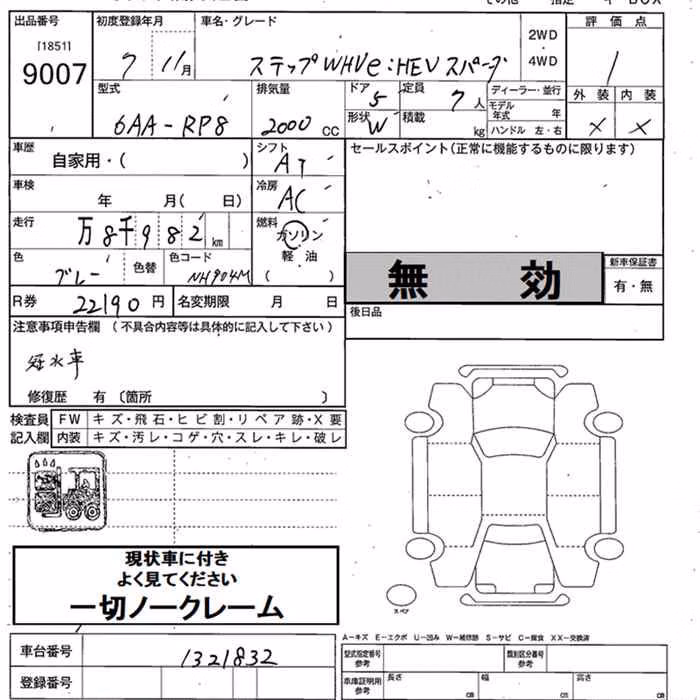 出品番号 初度登録年月 車名・グレード 2WD 評価点
[1851]
9007 7 11月 ステップWHVe:HEVスパーダ 4WD 1
型式 排気量 ドア 5 定員 7人 ディーラー・並行 外装 内装
6AA-RP8 2000cc 形状 W 積載 kg モデル年式 年 × ×
ハンドル 左・右
車歴 自家用・( ) シフト AT セールスポイント(正常に機能するものに限ります)
車検 年 月( 日) 冷房 AC
走行 万8千982km 燃料 ガソリン
色 グレー 色替 色コード NH904M 軽油 ( ) 無効 新車保証書
有・無
R券 22190円 名変期限 月 日 後日品
注意事項申告欄 (不具合内容等は具体的に記入して下さい)
冠水車
修復歴 有 (箇所 )
検査員 FW キズ・飛石・ヒビ割・リペア跡・X要
記入欄 内装 キズ・汚レ・コゲ・穴・スレ・キレ・破レ
現状車に付き
よく見てください
一切ノークレーム
スペア
A-キズ E-エクボ U-凹み W-補修跡 S-サビ C-腐食 XX-交換済
車台番号 1321832 型式指定番号 参考 類別区分番号 参考
登録番号 車庫証明用 参考 長さ cm 幅 cm 高さ cm